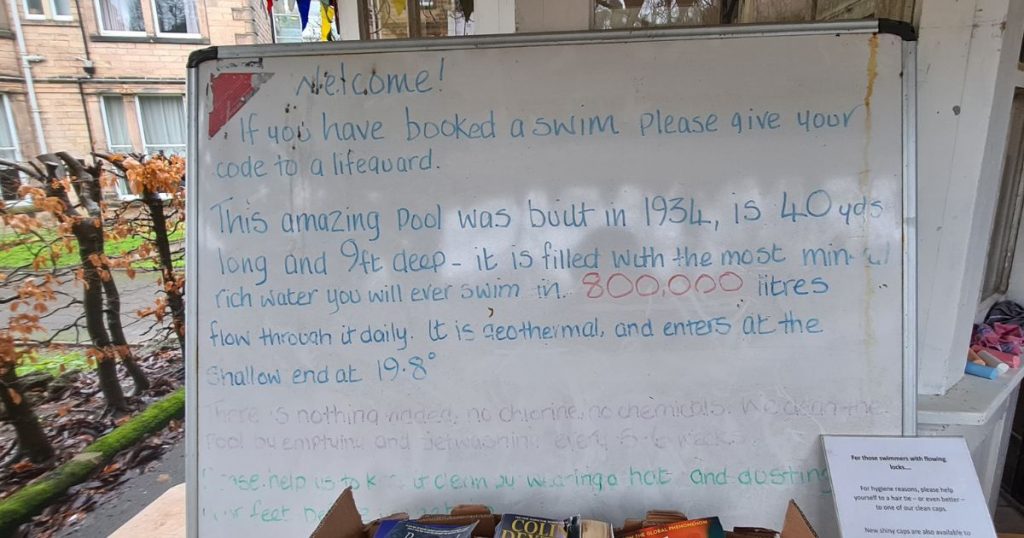 Welcome!
If you have booked a swim please give your
code to a lifeguard.
This amazing pool was built in 1934, is 40 yds
long and 9ft deep - it is filled with the most
rich water you will ever swim in. 800,000 litres
flow through it daily. It is geothermal, and enters at the
shallow end at 19.8°
There is nothing added, no chlorine, no chemicals. We clean the
pool by emptying and jetwashing every 5-6 weeks.
help us to it clean by wearing a hat and dusting
feet
For those swimmers with flowing
locks....
For hygiene reasons, please help
yourself to a hair tie – or even better –
to one of our clean caps.
New shiny caps are also available to
COLT
THE GLOBAL PHENOMENON